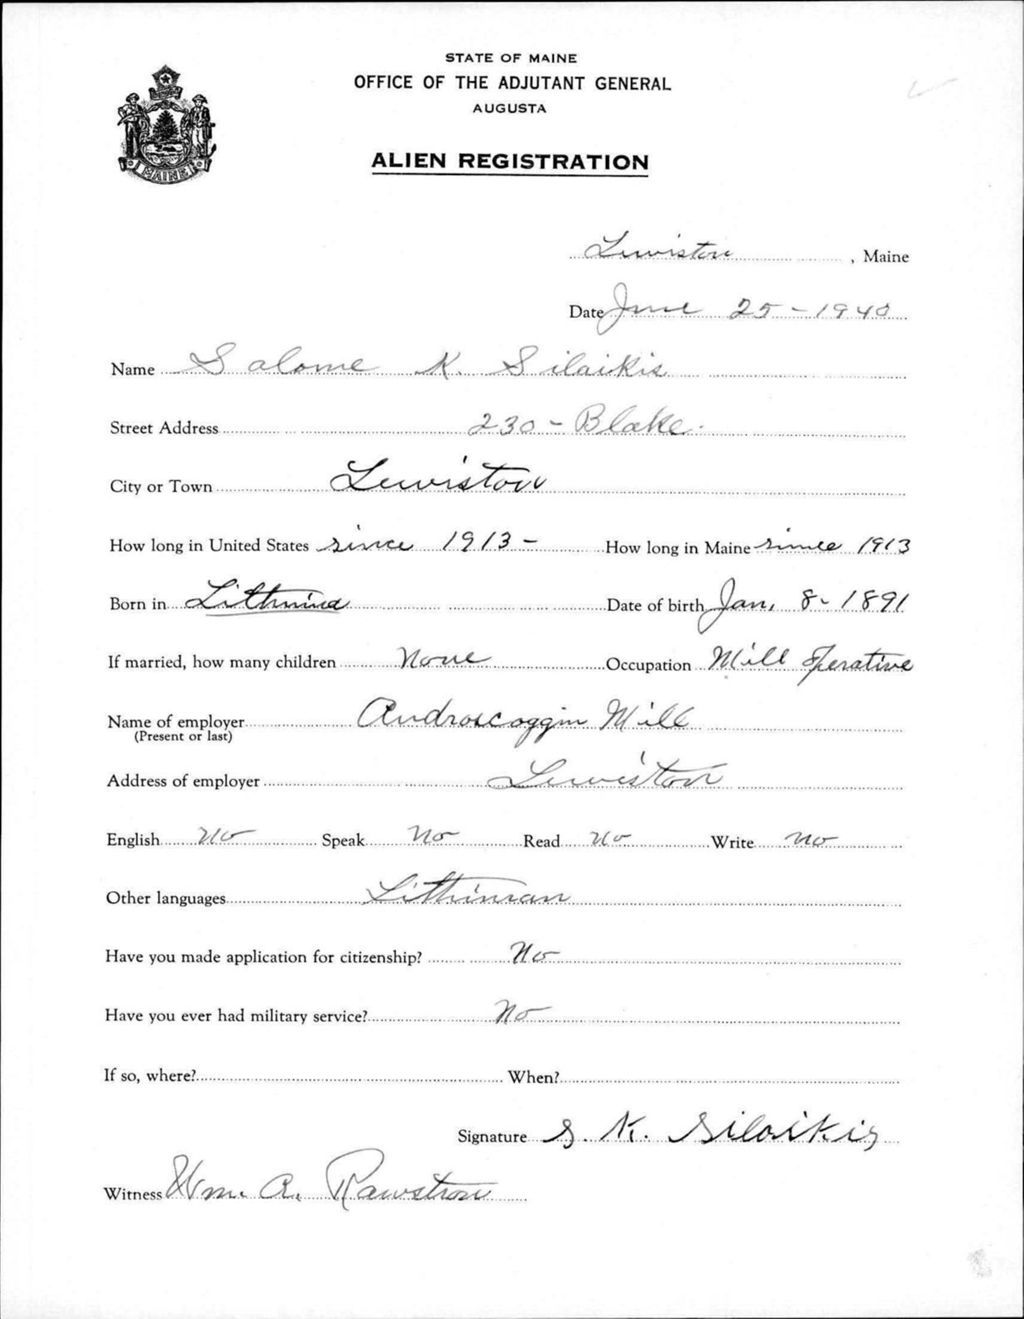 STATE OF MAINE
OFFICE OF THE ADJUTANT GENERAL
AUGUSTA
ALIEN REGISTRATION
MAINE
Lewiston, Maine
Date June 25 - 1940
Name Salome K. Silaikis
Street Address 230 - Blake.
City or Town Lewiston
How long in United States since 1913 - How long in Maine since 1913
Born in Lithunina Date of birth Jan, 8 - 1891
If married, how many children None Occupation Mill Operative
Name of employer Androscoggin Mill
(Present or last)
Address of employer Lewiston
English No Speak No Read No Write No
Other languages Lithinian
Have you made application for citizenship? No
Have you ever had military service? No
If so, where? When?
Signature S. K. Silaikis
Witness Wm. A. Rawstron